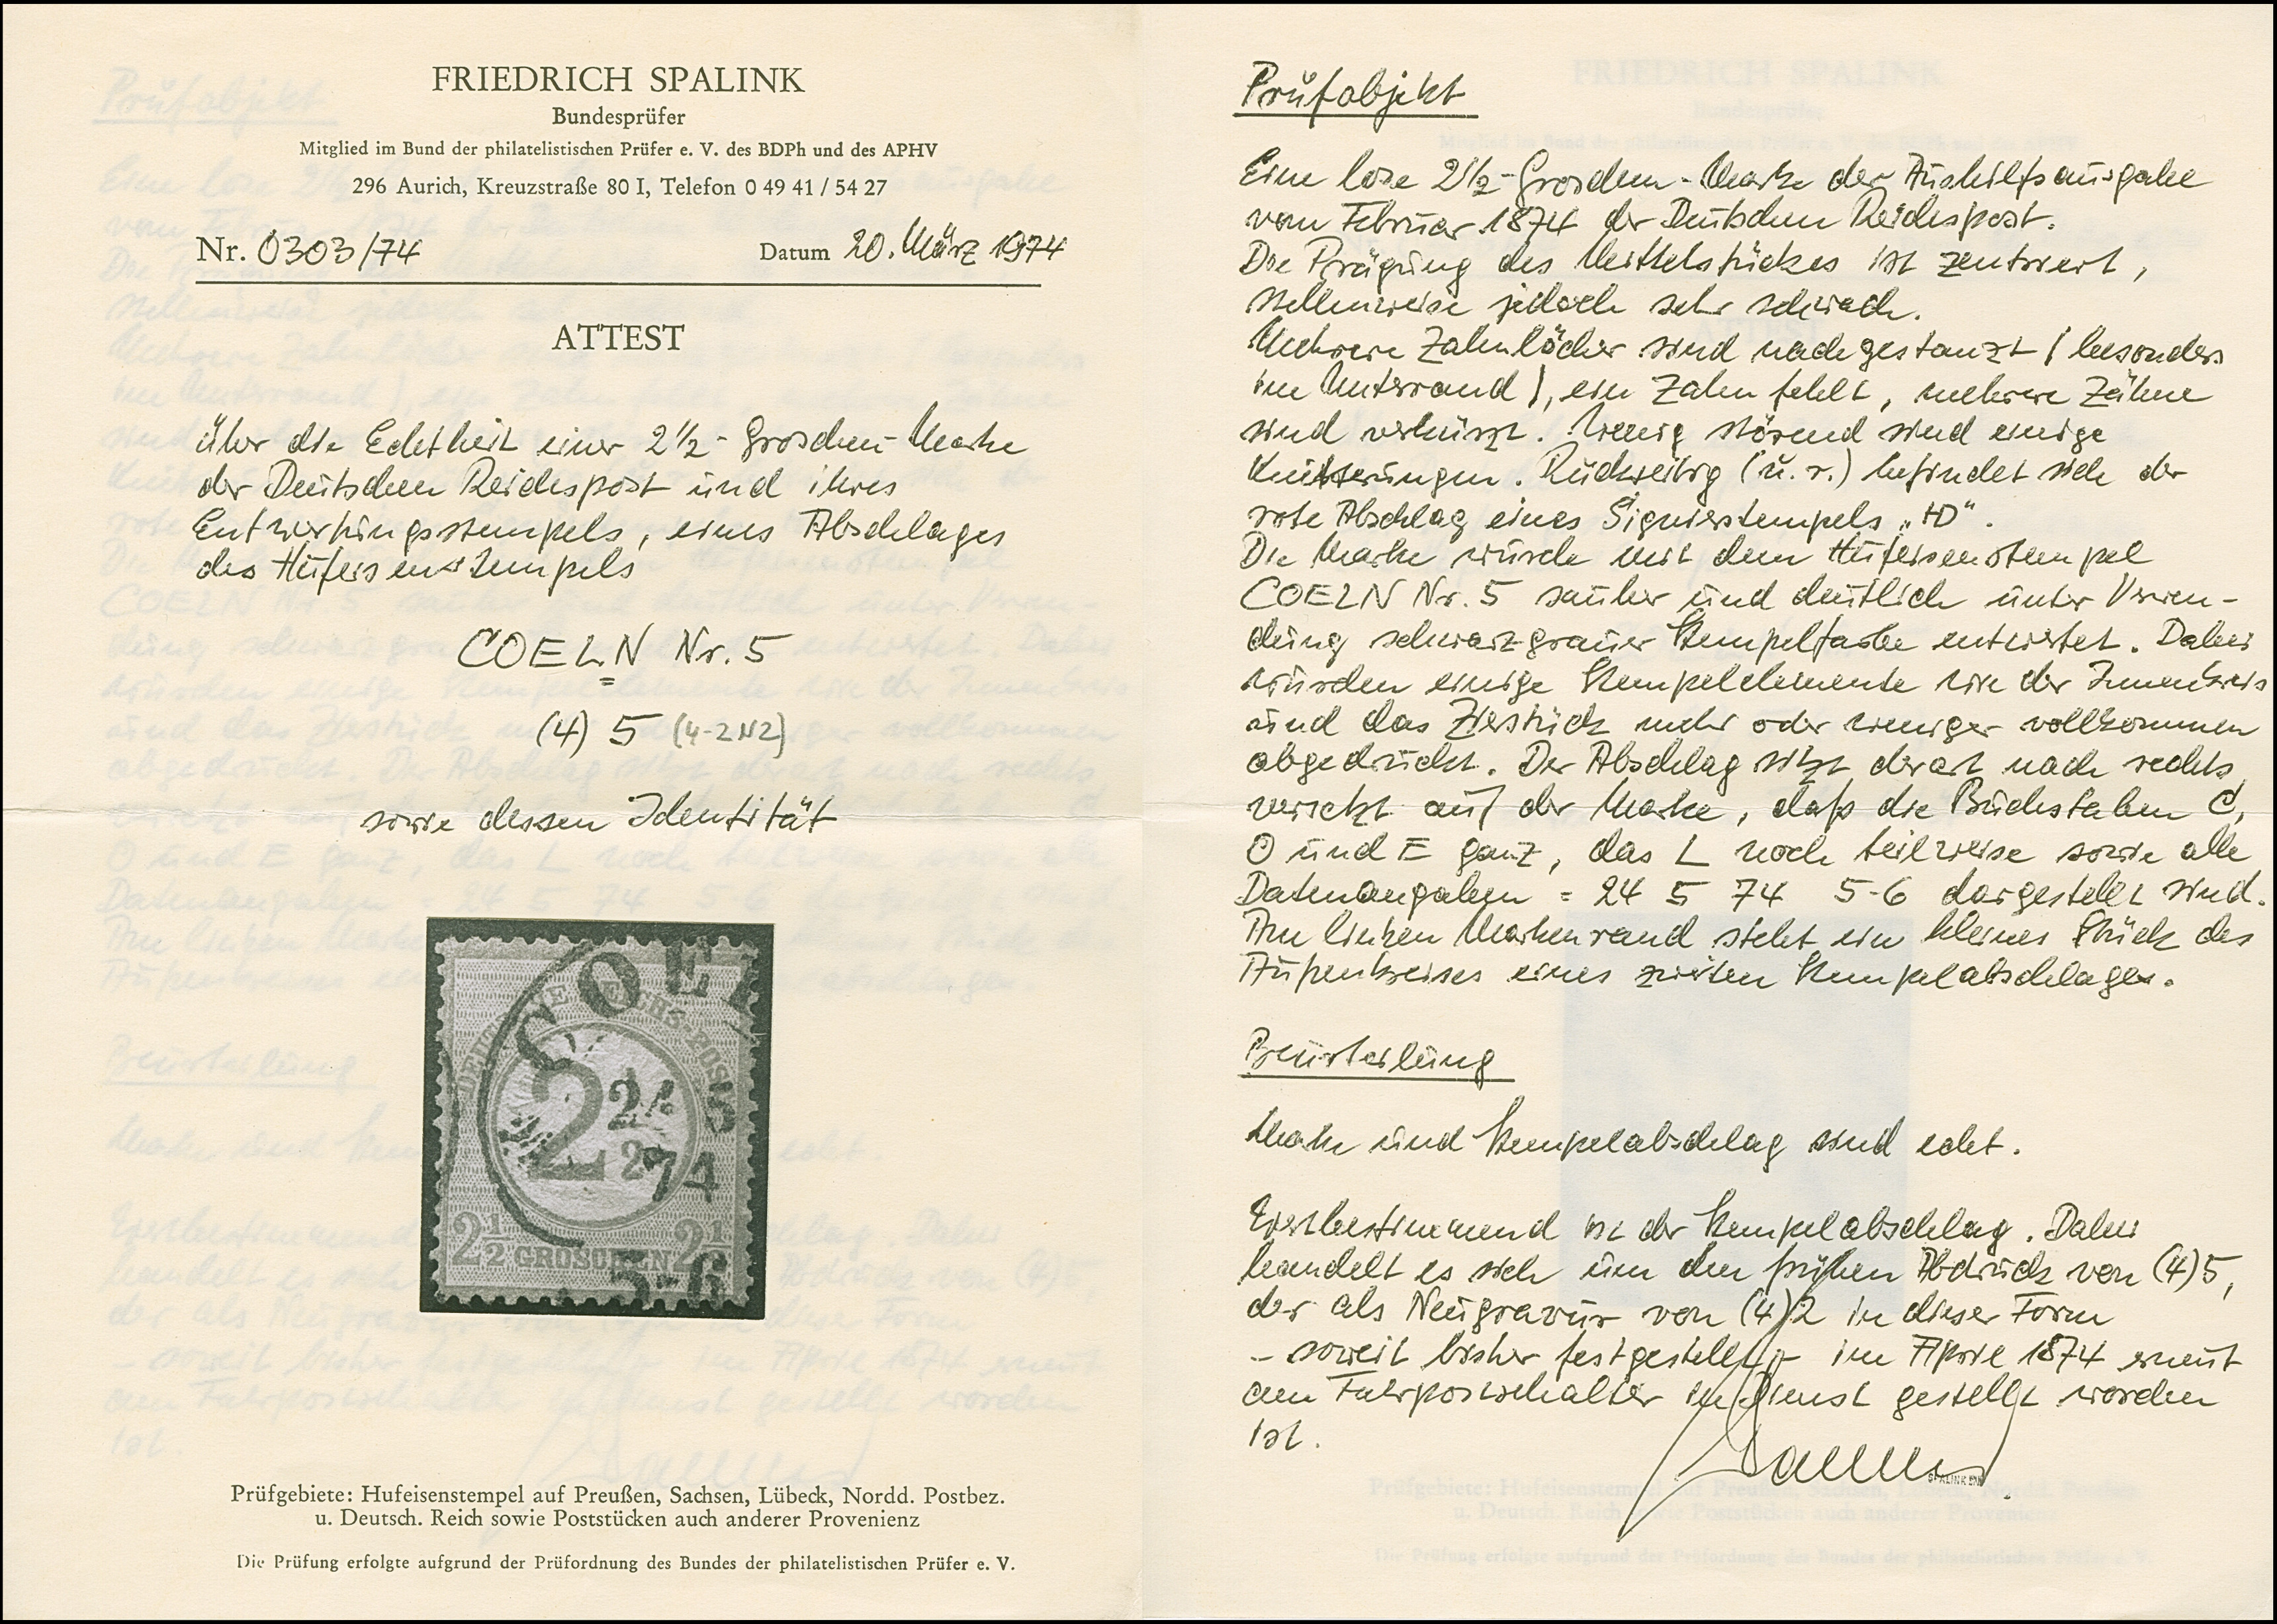 FRIEDRICH SPALINK
Bundesprüfer
Mitglied im Bund der philatelistischen Prüfer e. V. des BDPh und des APHV
296 Aurich, Kreuzstraße 80 I, Telefon 0 49 41 / 54 27
Nr. 0303/74 Datum 20. März 1974
ATTEST
über die Echtheit einer 2½-Groschen-Marke
der Deutschen Reichspost und ihres
Entwertungsstempels, eines Abschlages
des Hufeisenstempels
COELN Nr. 5
(4) 5 (4-2N2)
sowie dessen Identität
COEL
DEUTSCHE REICHS-POST
2½
24 5
74
2½ GROSCHEN 2½
5-6
Prüfgebiete: Hufeisenstempel auf Preußen, Sachsen, Lübeck, Nordd. Postbez.
u. Deutsch. Reich sowie Poststücken auch anderer Provenienz
Die Prüfung erfolgte aufgrund der Prüfordnung des Bundes der philatelistischen Prüfer e. V.
Prüfobjekt
Eine lose 2½-Groschen-Marke der Aushilfsausgabe
vom Februar 1874 der Deutschen Reichspost.
Die Prägung des Mittelstückes ist zentriert,
stellenweise jedoch sehr schwach.
Mehrere Zahnlöcher sind nachgestanzt (besonders
im Unterrand), ein Zahn fehlt, mehrere Zähne
sind verkürzt. Wenig störend sind einige
Knitterungen. Rückseitig (u. r.) befindet sich der
rote Abschlag eines Signierstempels „HD“.
Die Marke wurde mit dem Hufeisenstempel
COELN Nr. 5 sauber und deutlich unter Verwen-
dung schwarzgrauer Stempelfarbe entwertet. Dabei
wurden einige Stempelelemente wie der Innenkreis
und das Zierstück mehr oder weniger vollkommen
abgedrückt. Der Abschlag sitzt derart nach rechts
versetzt auf der Marke, daß die Buchstaben C,
O und E ganz, das L noch teilweise sowie alle
Datenangaben = 24 5 74 5-6 dargestellt sind.
Am linken Markenrand steht ein kleines Stück des
Außenkreises eines zweiten Stempelabschlages.
Beurteilung
Marke und Stempelabschlag sind echt.
Wertbestimmend ist der Stempelabschlag. Dabei
handelt es sich um den frühen Abdruck von (4)5,
der als Neugravur von (4)2 in dieser Form
– soweit bisher festgestellt – im April 1874 erneut
am Fahrpostschalter in Dienst gestellt worden
ist.